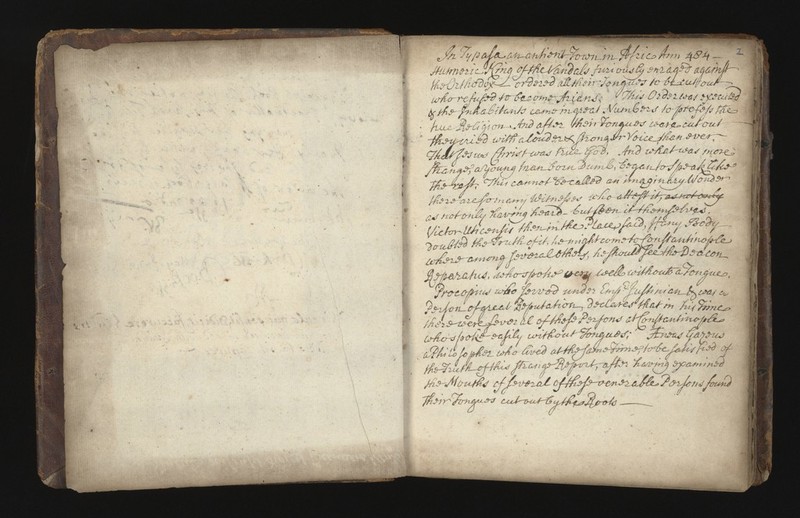 2
In Typasa an antient Town in Afric Ann 484 —
Hunneric King of the Vandals furiously enraged against
the Orthodox — ordered all their Tongues to be cutt out
who refused to become Arians. This Order was executed
& the Inhabitants came in great Numbers to profess the
true Religion And after their Tongues were cut out
they cried with a louder & stronger Voice than ever,
That Jesus Christ was true God. And what was more
strange, a young man born Dumb, began to speak like
the rest. This cannot be called an imaginary Wonder
there are so many Witnesses who attest it, as not only
as not only having heard but seen it themselves.
Victor Uticensis then in the Place, said, if any Body
doubted the Truth of it, he might come to Constantinople
where among several others, he should see the Deacon
Reparatus, who spoke very well without a Tongue.
Procopius who served under Emp.r Justinian & was a
Person of great Reputation declares that in his Time
there were several of those Persons at Constantinople
who spoke easily without Tongues. Æneas Gazeus
a Philosopher who lived at the same Time, to be satisfied of
the Truth of this strange Report, after having examined
the Mouths of several of these venerable Persons found
their Tongues cut out by the Roots —